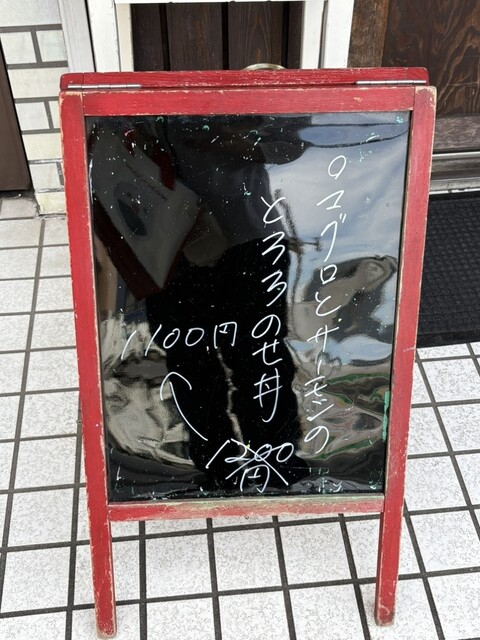 ○マグロとサーモンの
とろろのせ丼
1200円
1100円